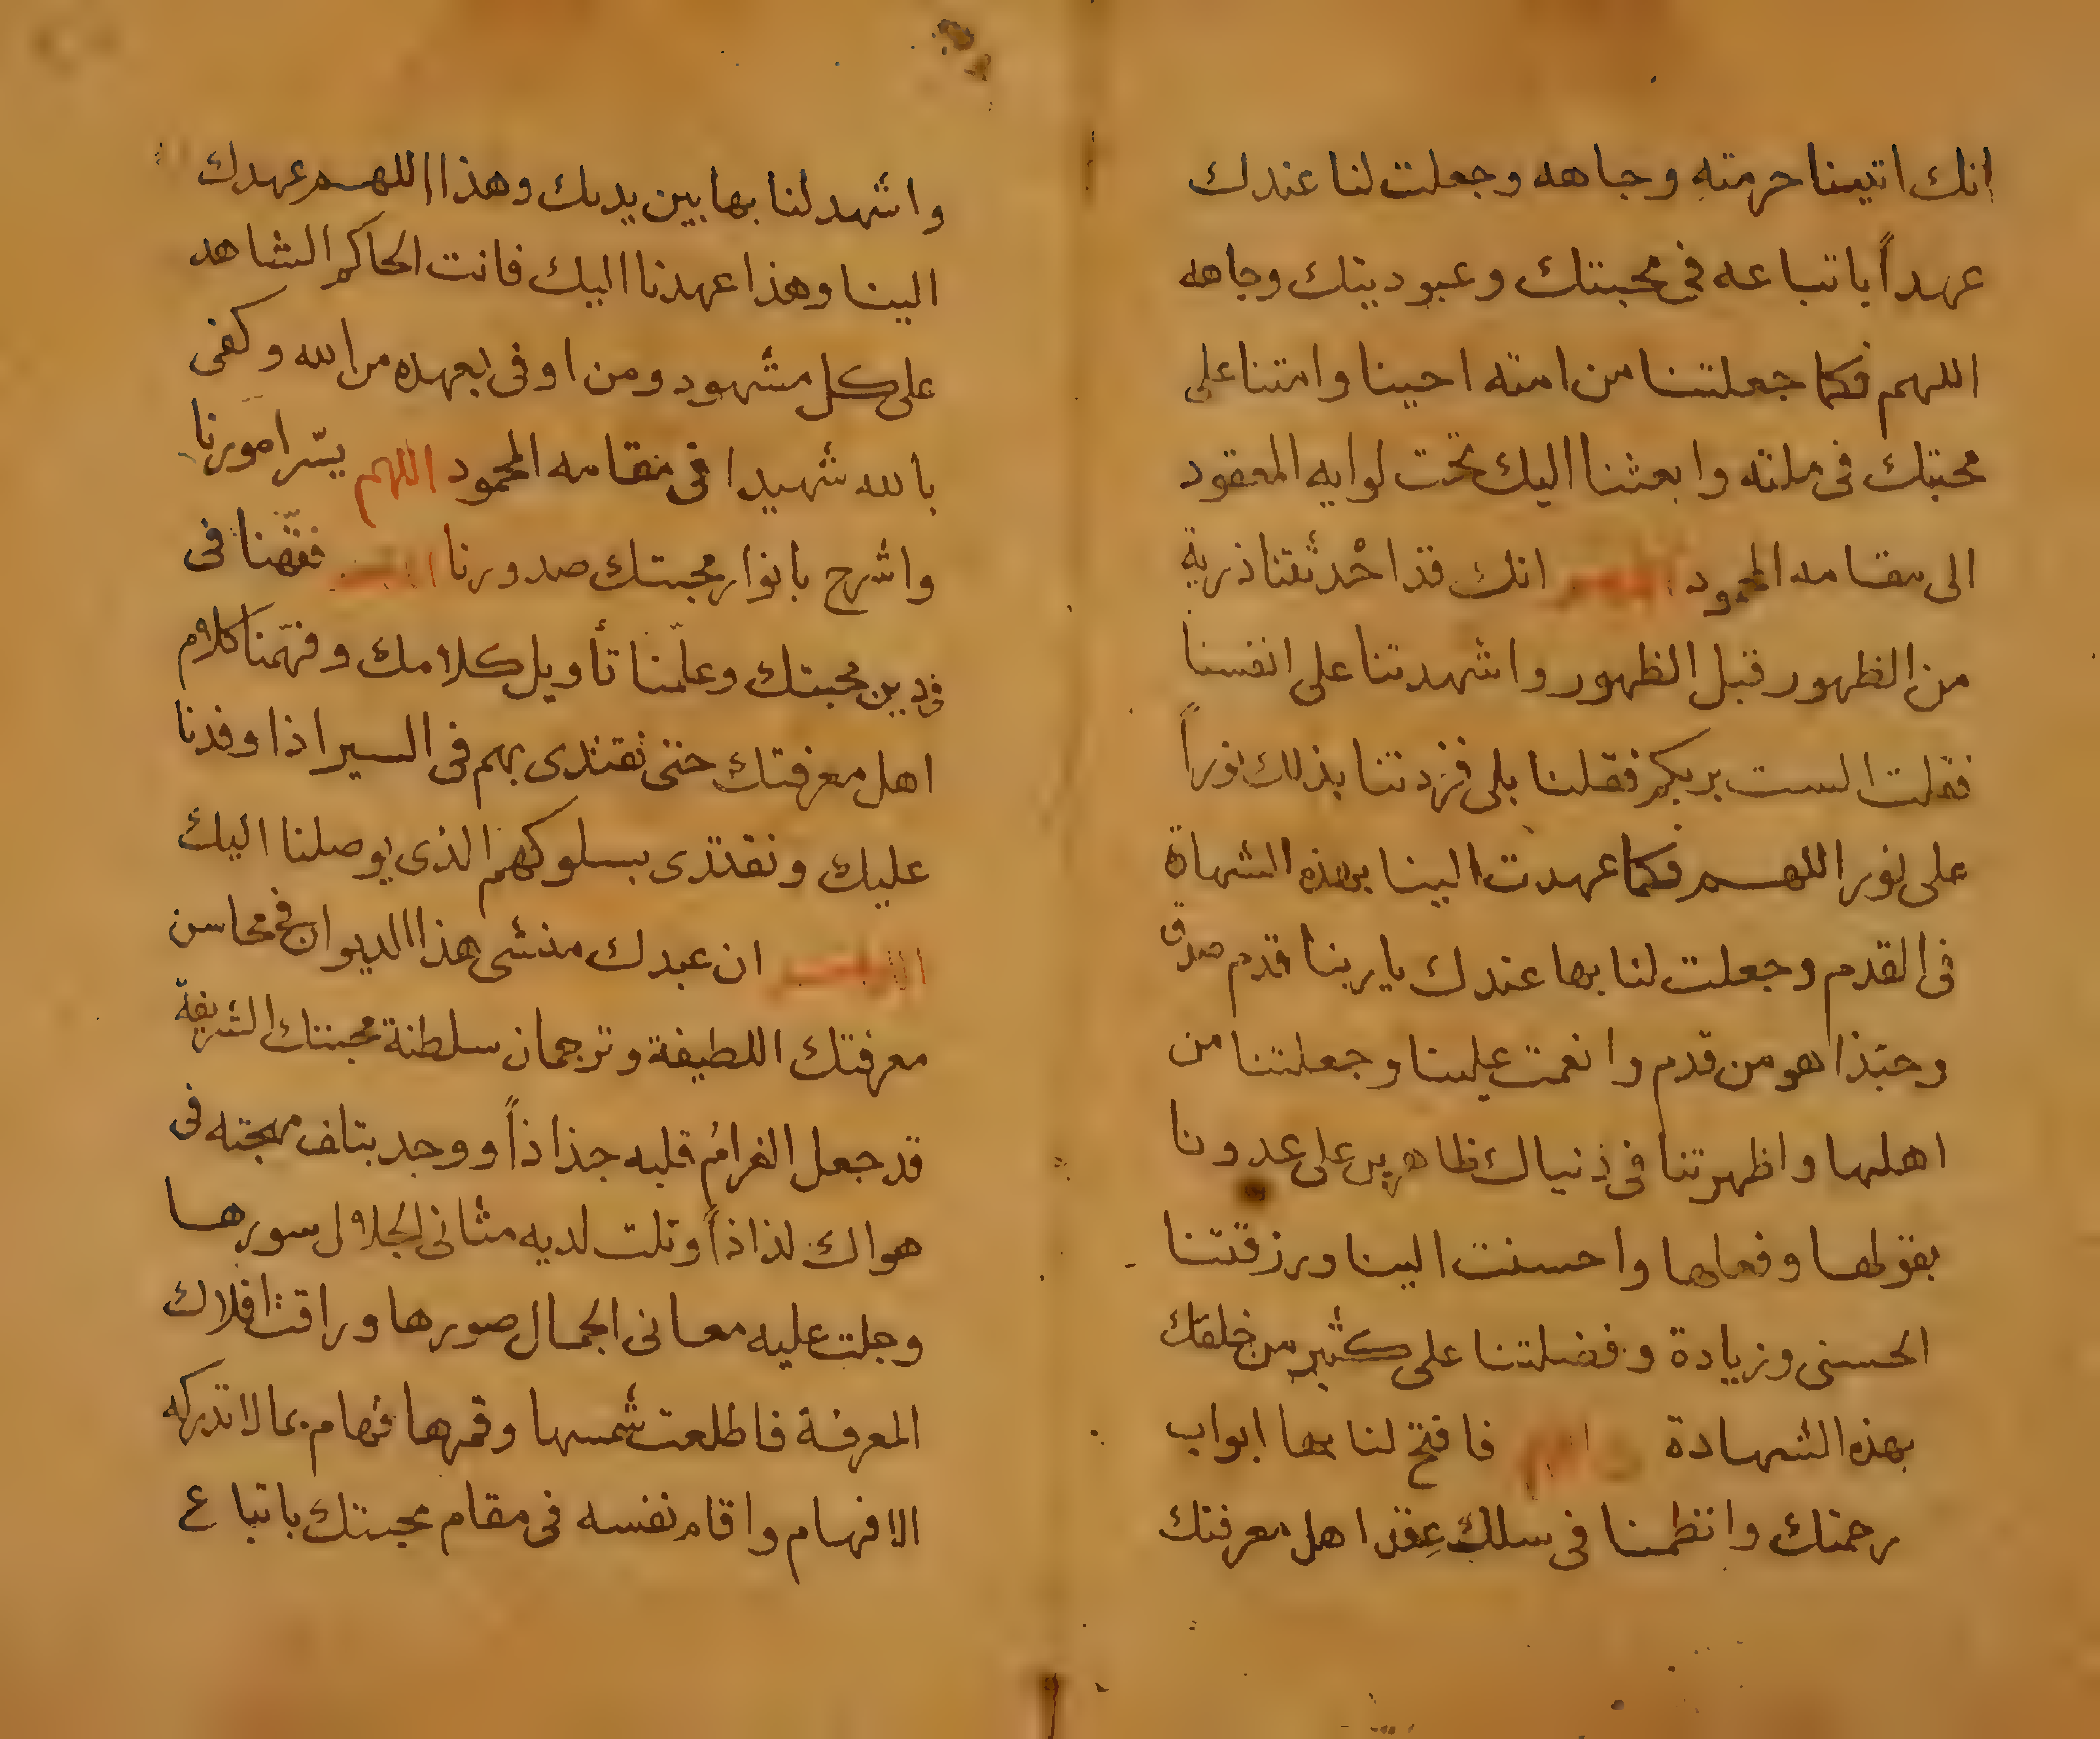 انك اتيتنا حرمته وجاهه وجعلت لنا عندك
عهداً باتباعه فى محبتك وعبوديتك وجاهه
اللهم فكما جعلتنا من امته احينا وامتنا على
محبتك فى ملته وابعثنا اليك تحت لوايه المعقود
الى مقامه المحمود انك قد احْدثتنا ذرية
من الظهور قبل الظهور واشهدتنا على انفسنا
فقلت الست بربكم فقلنا بلى فزدتنا بذلك نوراً
على نور اللهم فكما عهدت الينا بهذه الشهاة
فى القدم وجعلت لنا بها عندك يا ربنا قدم صدق
وحبّذا هو من قدم وانعمت علينا وجعلتنا من
اهلها واظهرتنا فى دنياك ظاهرين على عدونا
بقولها وفعلها واحسنت الينا ورزقتنا
الحسنى وزيادة وفضلتنا على كثير من خلقك
بهذه الشهادة فافتح لنا بها ابواب
رحمتك وانظمنا فى سلك عِقد اهل معرفتك
واشهد لنا بها بين يديك وهذا اللهم عهدك
الينا وهذا عهدنا اليك فانت الحاكم الشاهد
على كل مشهود ومن اوفى بعهده من الله وكفى
بالله شهيدا فى مقامه المحمود اللهم يسّر امورنا
واشرح بانوار محبتك صدورنا فقّهنا فى
دين محبتك وعلّمنا تأويل كلامك وفهّمنا كلام
اهل معرفتك حتى نقتدى بهم فى السير اذا وفدنا
عليك ونقتدى بسلوكهم الذى يوصلنا اليك
اللهم ان عبدك منشى هذا الديوان فى محاسن
معرفتك اللطيفة وترجمان سلطنة محبتك الشريفة
قد جعل الغرامُ قلبه جذاذاً ووجد بتلف مهجته فى
هواك لذاذاً وتلت لديه مثانى الجلال سورها
وجلت عليه معانى الجمال صورها وراقت افلاك
المعرفة فاطلعت شمسها وقمرها فهام بما لا تدركه
الافهام واقام نفسه فى مقام محبتك باتباع